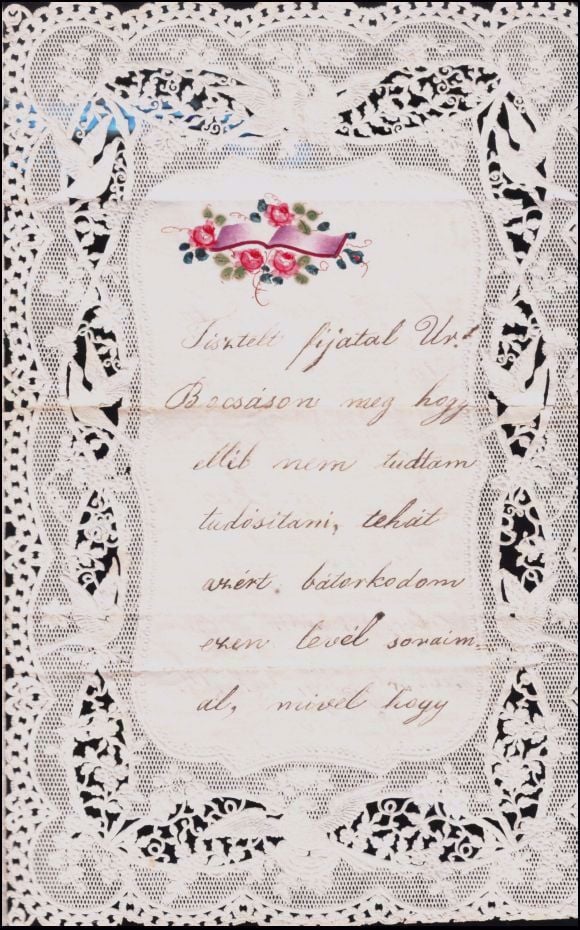 Tisztelt fijatal Úr!
Bocsáson meg hogy
elléb nem tudtam
tudósitani, tehát
azért bátorkodom
ezen levél soraim=
al, mivel hogy